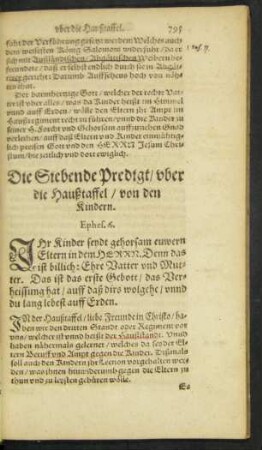 vber die Haußtaffel. 795
steht der Verführung
dem weisesten König Salomon widerfuhr / da er
sich mit Außländischen / Abgöttischen Weibern be-
freundete / daß er selbst endlich durch sie in Abgöt-
terey geriehet: Darumb Auffsehens hoch von nöh-
ten thut.
Der barmhertzige Gott / welcher der rechte Vat-
ter ist vber alles / was da Kinder heist im Himmel
vnnd auff Erden / wölle den Eltern jhr Ampt im
Haußregiment recht zu führen / vnnd die Kinder in
seiner Forcht vnd Gehorsam auffzuziehen Gnad
verleihen / auff daß Eltern vnd Kinder einmühtig-
lich preisen Gott vnd den HERRN Jesum Chri-
stum / hie zeitlich vnd dort ewiglich.
Die Siebende Predigt / vber
die Haußtaffel / von den
Kindern.
Ephes. 6.
IHr Kinder seydt gehorsam euwern
Eltern in dem HERRN. Denn das
ist billich: Ehre Vatter vnd Mut-
ter. Das ist das erste Gebott / das Ver-
heissung hat / auff daß dirs wolgehe / vnnd
du lang lebest auff Erden.
IN der Haußtaffel / liebe Freunde in Christo / ha-
ben wir den dritten Stande oder Regiment vor
vns / welcher ist vnnd heist der Haußstandt. Vnnd
haben nähermals gelernet / welches da sey der El-
tern Beruff vnd Ampt gegen die Kinder. Dißmals
soll auch den Kindern jhr Lection vorgehalten wer-
den / was ihnen hinwiderumb gegen die Eltern zu
thun vnd zu leysten gebüren wölle.
Es